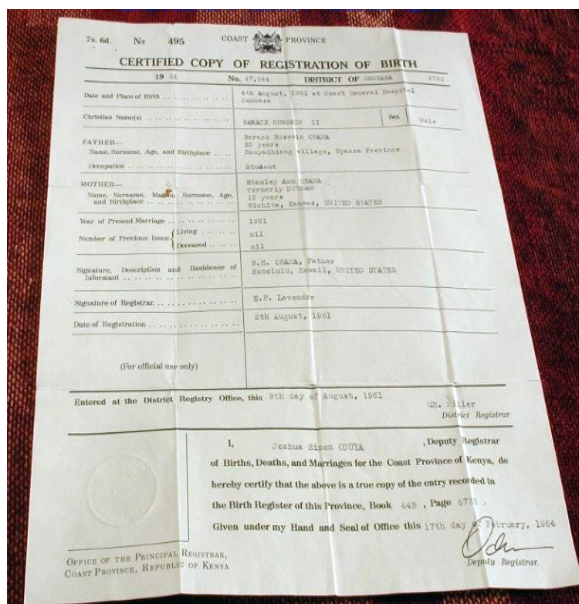 7s. 6d. No 495 COAST PROVINCE
CERTIFIED COPY OF REGISTRATION OF BIRTH
19 64 No. 47,044 DISTRICT OF MOMBASA 5733
Date and Place of Birth 4th August, 1961 at Coast General Hospital
Mombasa
Christian Name(s) BARACK HUSSEIN II Sex Male
FATHER— Barack Hussein OBAMA
Name, Surname, Age, and Birthplace 25 years
village, Nyanza Province
Occupation Student
MOTHER— Stanley Ann OBAMA
Name, Surname, Maiden Surname, Age, formerly DUNHAM
and Birthplace 18 years
Wichita, Kansas, UNITED STATES
Year of Present Marriage 1961
Number of Previous Issue { Living nil
Deceased nil
Signature, Description and Residence of B.H. OBAMA, Father
Informant Honolulu, Hawaii, UNITED STATES
Signature of Registrar E.F. Lavender
Date of Registration 5th August, 1961
(For official use only)
Entered at the District Registry Office, this 9th day of August, 1961
Miller
District Registrar
I, Joshua Simon ODUYA , Deputy Registrar
of Births, Deaths, and Marriages for the Coast Province of Kenya, do
hereby certify that the above is a true copy of the entry recorded in
the Birth Register of this Province, Book 44B , Page 5733 .
Given under my Hand and Seal of Office this 17th day of February, 1964
OFFICE OF THE PRINCIPAL REGISTRAR,
COAST PROVINCE, REPUBLIC OF KENYA
Deputy Registrar.